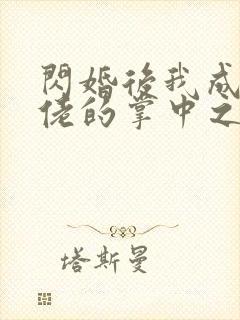 閃婚後我成
佬的掌中之
塔斯曼